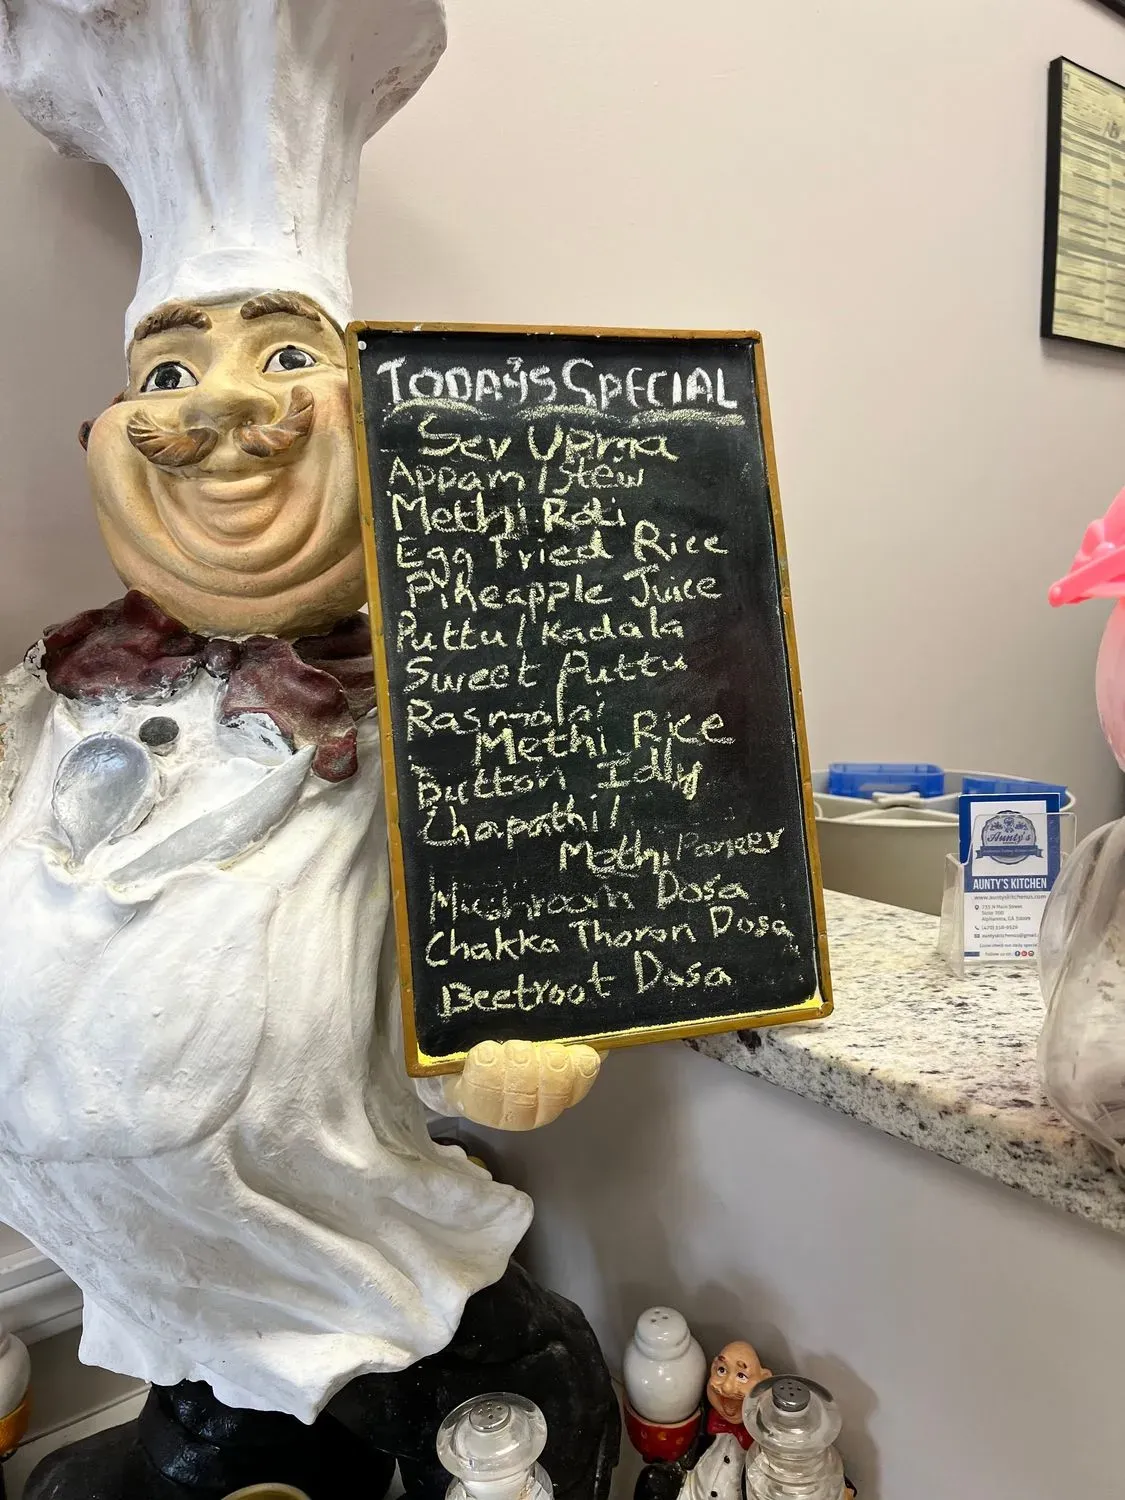 TODAY'S SPECIAL
Sev Upma
Appam / stew
Methi Roti
Egg Fried Rice
Pineapple Juice
Puttu / Kadala
Sweet Puttu
Rasmalai
Methi Rice
Button Idly
Chapathi /
Methi Paneer
Mushroom Dosa
Chakka Thoron Dosa
Beetroot Dosa
Aunty's
AUNTY'S KITCHEN
www.auntyskitchenus.com
735 N Main Street
Suite 900
Alpharetta, GA 30009
Follow us on